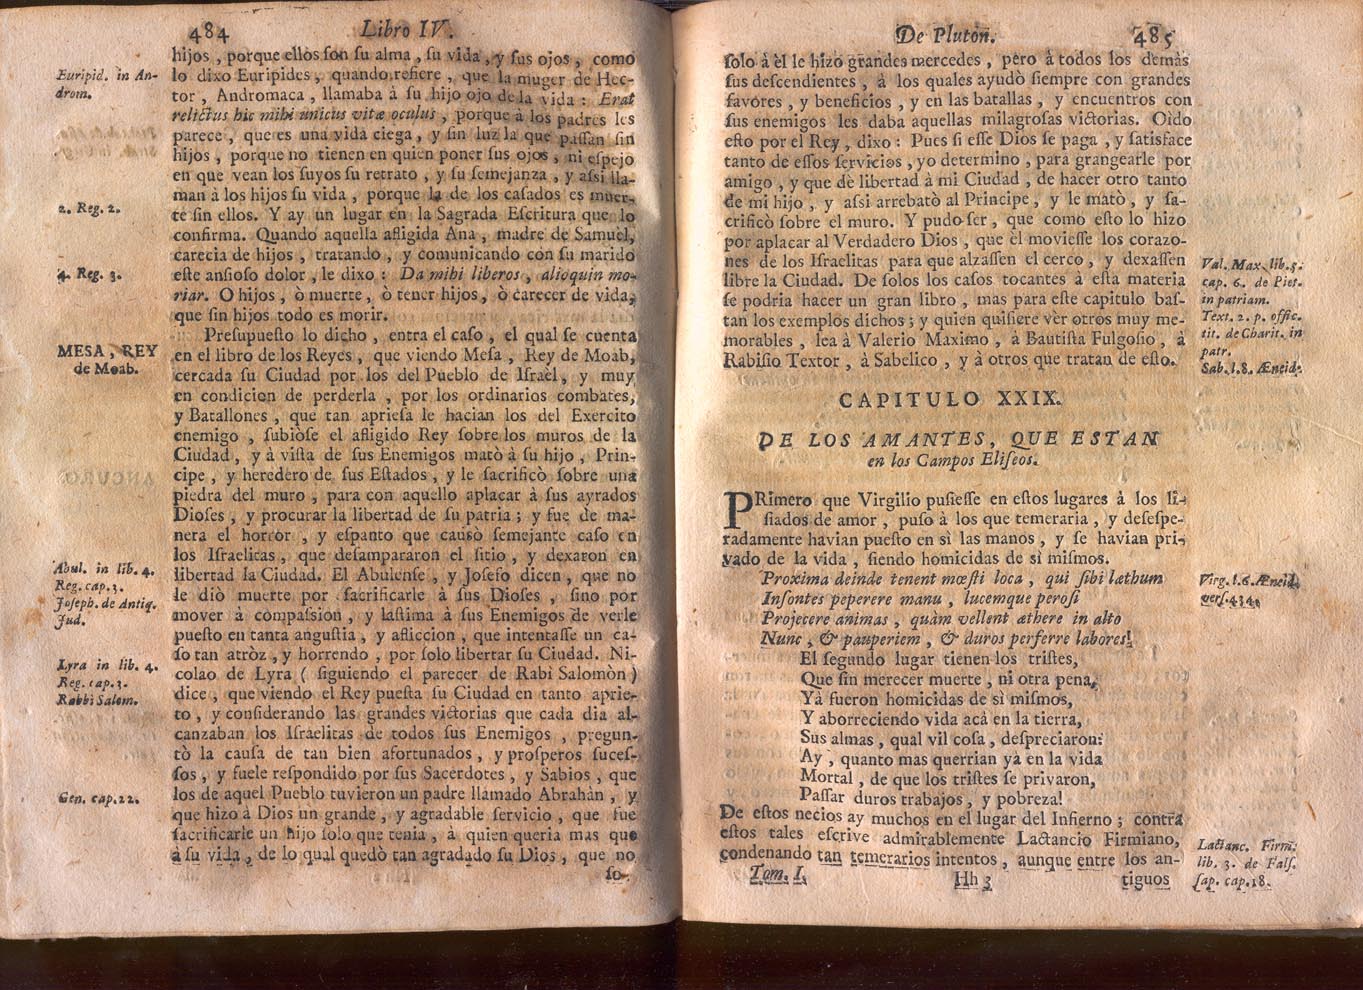 484 Libro IV.
hijos, porque ellos son su alma, su vida, y sus ojos, como
Euripid. in An-
drom.
lo dixo Euripides, quando refiere, que la muger de Hec-
tor, Andromaca, llamaba à su hijo ojo de la vida: Erat
relictus hic mihi unicus vitæ oculus, porque à los padres les
parece, que es una vida ciega, y sin luz la que passan sin
hijos, porque no tienen en quien poner sus ojos, ni espejo
en que vean los suyos su retrato, y su semejanza, y assi lla-
man à los hijos su vida, porque la de los casados es muer-
2. Reg. 2.
te sin ellos. Y ay un lugar en la Sagrada Escritura que lo
confirma. Quando aquella afligida Ana, madre de Samuel,
carecia de hijos, tratando, y comunicando con su marido
4. Reg. 3.
este ansioso dolor, le dixo: Da mihi liberos, alioquin mo-
riar. O hijos, ò muerte, ò tener hijos, ò carecer de vida,
que sin hijos todo es morir.
Presupuesto lo dicho, entra el caso, el qual se cuenta
MESA, REY
de Moab.
en el libro de los Reyes, que viendo Mesa, Rey de Moab,
cercada su Ciudad por los del Pueblo de Israèl, y muy
en condicion de perderla, por los ordinarios combates,
y Batallones, que tan apriesa le hacian los del Exercito
enemigo, subiòse el afligido Rey sobre los muros de la
Ciudad, y à vista de sus Enemigos matò à su hijo, Prin-
cipe, y heredero de sus Estados, y le sacrificò sobre una
piedra del muro, para con aquello aplacar à sus ayrados
Dioses, y procurar la libertad de su patria; y fue de ma-
nera el horror, y espanto que causò semejante caso en
los Israelitas, que desampararon el sitio, y dexaron en
Abul. in lib. 4.
Reg. cap. 3.
Joseph. de Antiq.
Jud.
libertad la Ciudad. El Abulense, y Josefo dicen, que no
le diò muerte por sacrificarle à sus Dioses, sino por
mover à compassion, y lastima à sus Enemigos de verle
puesto en tanta angustia, y afliccion, que intentasse un ca-
so tan atròz, y horrendo, por solo libertar su Ciudad. Ni-
Lyra in lib. 4.
Reg. cap. 3.
Rabbi Salom.
colao de Lyra (siguiendo el parecer de Rabi Salomòn)
dice, que viendo el Rey puesta su Ciudad en tanto aprie-
to, y considerando las grandes victorias que cada dia al-
canzaban los Israelitas de todos sus Enemigos, pregun-
tò la causa de tan bien afortunados, y prosperos suces-
sos, y fuele respondido por sus Sacerdotes, y Sabios, que
Gen. cap. 22.
los de aquel Pueblo tuvieron un padre llamado Abrahàn, y
que hizo à Dios un grande, y agradable servicio, que fue
sacrificarle un hijo solo que tenia, à quien queria mas que
à su vida, de lo qual quedò tan agradado su Dios, que no
so-
De Pluton. 485
solo à èl le hizo grandes mercedes, pero à todos los demàs
sus descendientes, à los quales ayudò siempre con grandes
favores, y beneficios, y en las batallas, y encuentros con
sus enemigos les daba aquellas milagrosas victorias. Oìdo
esto por el Rey, dixo: Pues si esse Dios se paga, y satisface
tanto de essos servicios, yo determino, para grangearle por
amigo, y que dè libertad à mi Ciudad, de hacer otro tanto
de mi hijo, y assi arrebatò al Principe, y le matò, y sa-
crificò sobre el muro. Y pudo ser, que como esto lo hizo
por aplacar al Verdadero Dios, que èl moviesse los corazo-
nes de los Israelitas para que alzassen el cerco, y dexassen
libre la Ciudad. De solos los casos tocantes à esta materia
se podria hacer un gran libro, mas para este capitulo bas-
tan los exemplos dichos; y quien quisiere vèr otros muy me-
morables, lea à Valerio Maximo, à Bautista Fulgosio, à
Rabisio Textor, à Sabelico, y à otros que tratan de esto.
Val. Max. lib. 5.
cap. 6. de Piet.
in patriam.
Text. 2. p. offic.
tit. de Charit. in
patr.
Sab. l. 8. Æneid.
CAPITULO XXIX.
DE LOS AMANTES, QUE ESTAN
en los Campos Eliseos.
PRimero que Virgilio pusiesse en estos lugares à los li-
siados de amor, puso à los que temeraria, y desespe-
radamente havian puesto en sì las manos, y se havian pri-
vado de la vida, siendo homicidas de sì mismos.
Virg. l. 6. Æneid.
vers. 434.
Proxima deinde tenent mœsti loca, qui sibi læthum
Insontes peperere manu, lucemque perosi
Projecere animas, quàm vellent æthere in alto
Nunc, & pauperiem, & duros perferre labores!
El segundo lugar tienen los tristes,
Que sin merecer muerte, ni otra pena,
Yà fueron homicidas de sì mismos,
Y aborreciendo vida acà en la tierra,
Sus almas, qual vil cosa, despreciaron:
Ay, quanto mas querrian ya en la vida
Mortal, de que los tristes se privaron,
Passar duros trabajos, y pobreza!
De estos necios ay muchos en el lugar del Infierno; contra
estos tales escrive admirablemente Lactancio Firmiano,
condenando tan temerarios intentos, aunque entre los an-
Lactanc. Firm.
lib. 3. de Fals.
sap. cap. 18.
Tom. I. Hh 3 tiguos